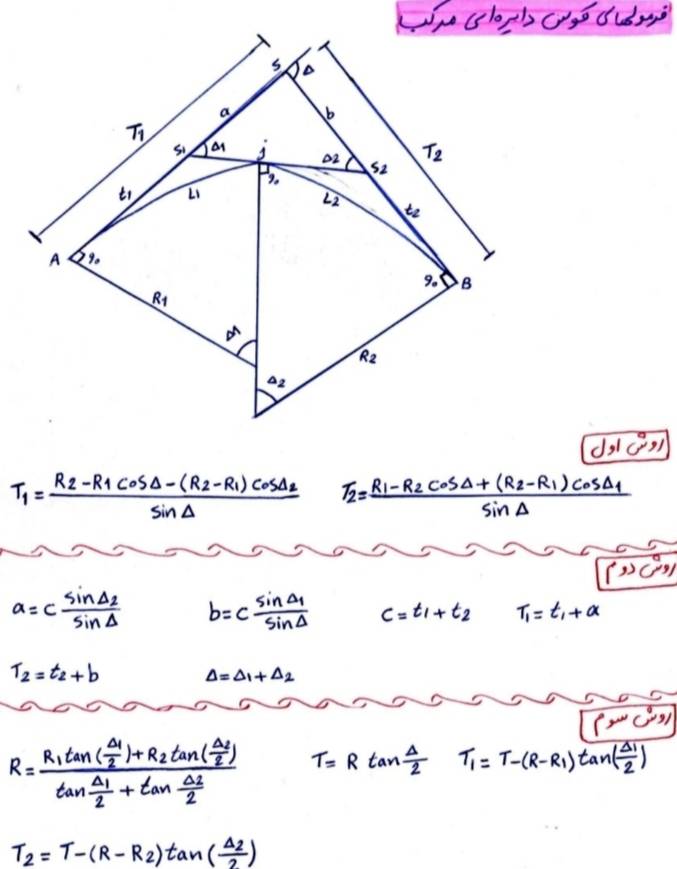 فرمولهای قوس دایره‌ای مرکب
S Δ
a
b
T1
T2
S1 Δ1
j
Δ2 S2
t1
L1
90
L2
t2
A 90
90 B
R1
Δ1
R2
Δ2
روش اول
T1 = (R2-R1 cosΔ-(R2-R1) cosΔ2) / sin Δ
T2 = (R1-R2 cosΔ+(R2-R1) cosΔ1) / sin Δ
روش دوم
a = c sinΔ2 / sinΔ
b = c sinΔ1 / sinΔ
C = t1 + t2
T1 = t1 + a
T2 = t2 + b
Δ = Δ1 + Δ2
روش سوم
R = (R1 tan(Δ1/2) + R2 tan(Δ2/2)) / (tan Δ1/2 + tan Δ2/2)
T = R tan Δ/2
T1 = T-(R-R1) tan(Δ1/2)
T2 = T-(R-R2) tan(Δ2/2)